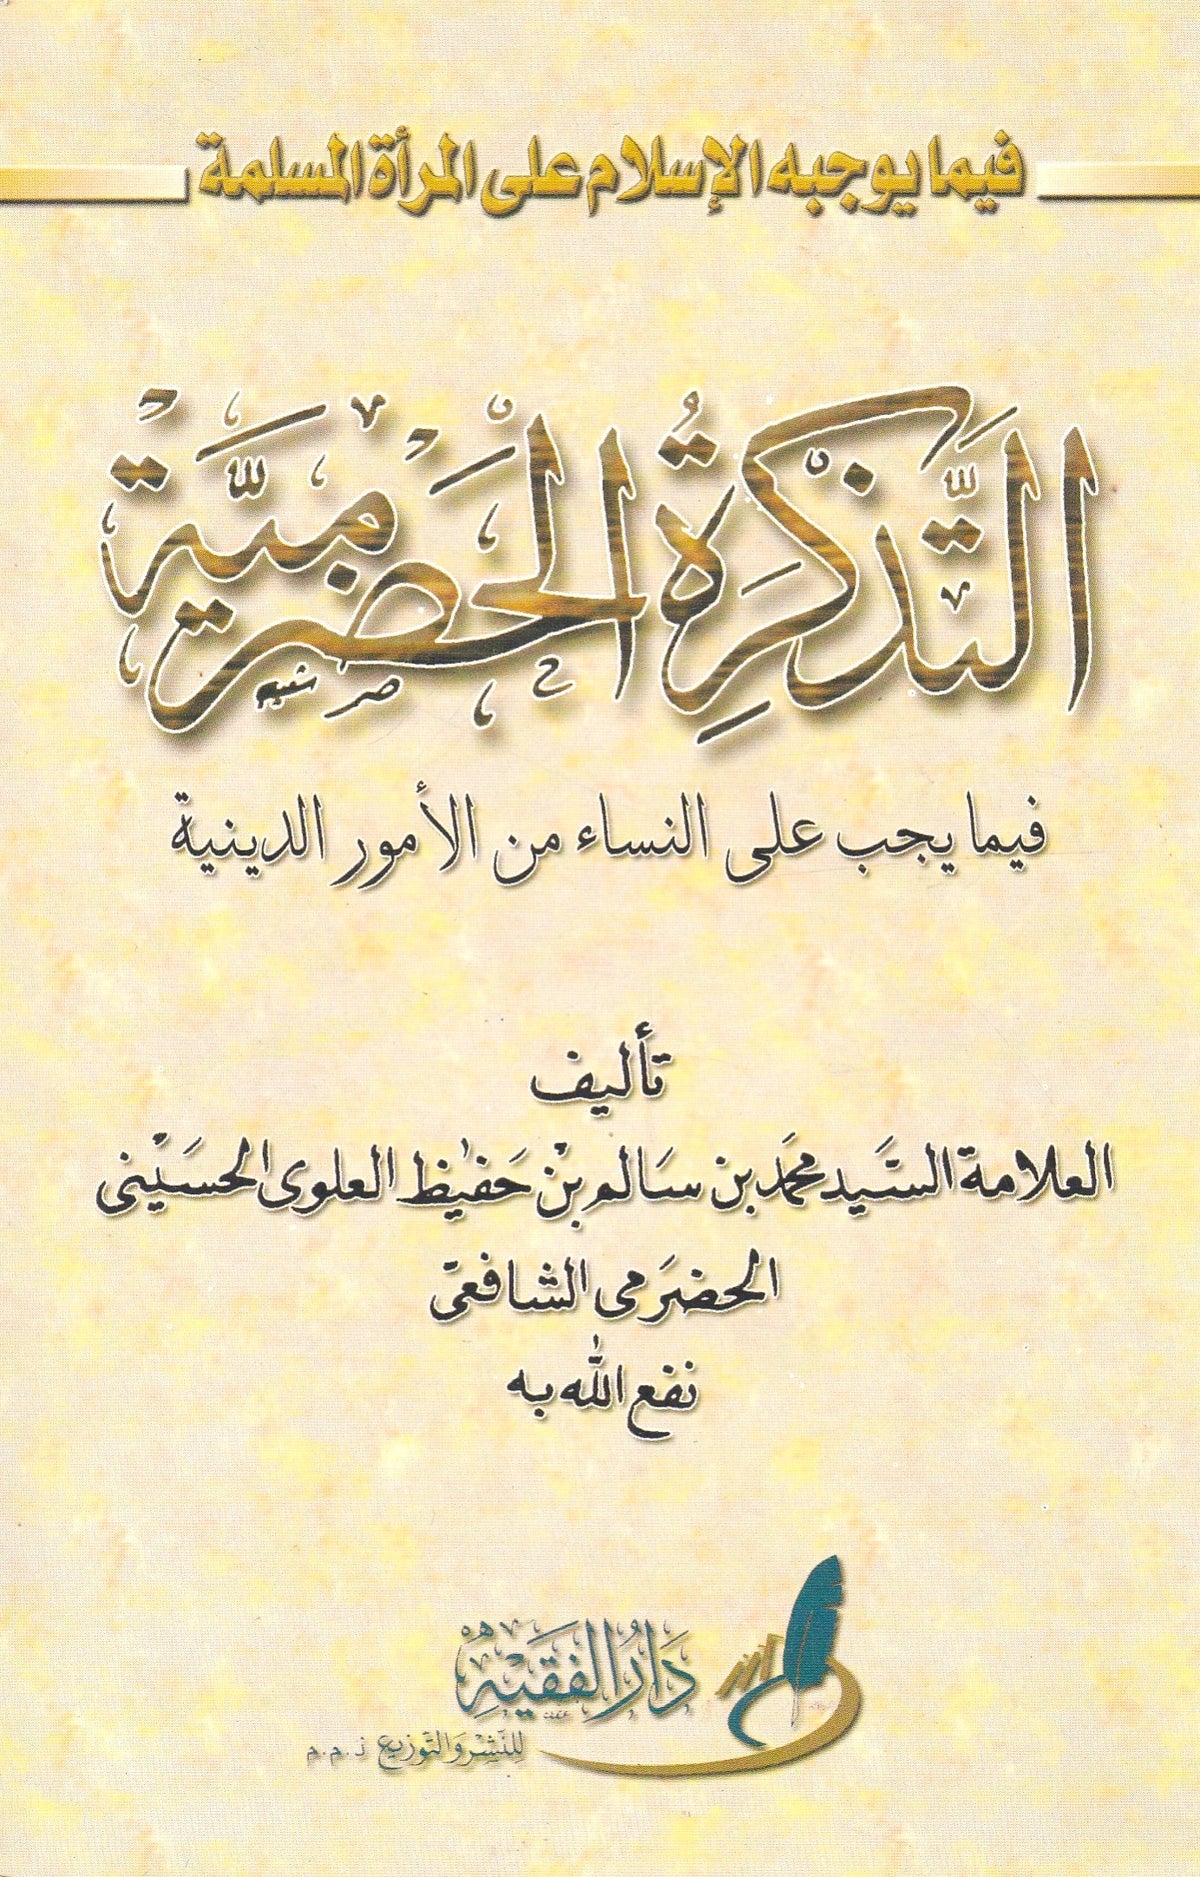 فيما يوجبه الإسلام على المرأة المسلمة
التَّذْكِرَةُ الحَضْرَمِيَّة
فيما يجب على النساء من الأمور الدينية
تأليف
العلامة السَّيد محمَّد بن سَالم بنْ حَفيظ العلوى الحسَيْنى
الحضرَمى الشافعىّ
نفع الله به
دَارُ الفَقِيْه
لِلنَّشْرِ وَالتَّوْزِيع ذ.م.م